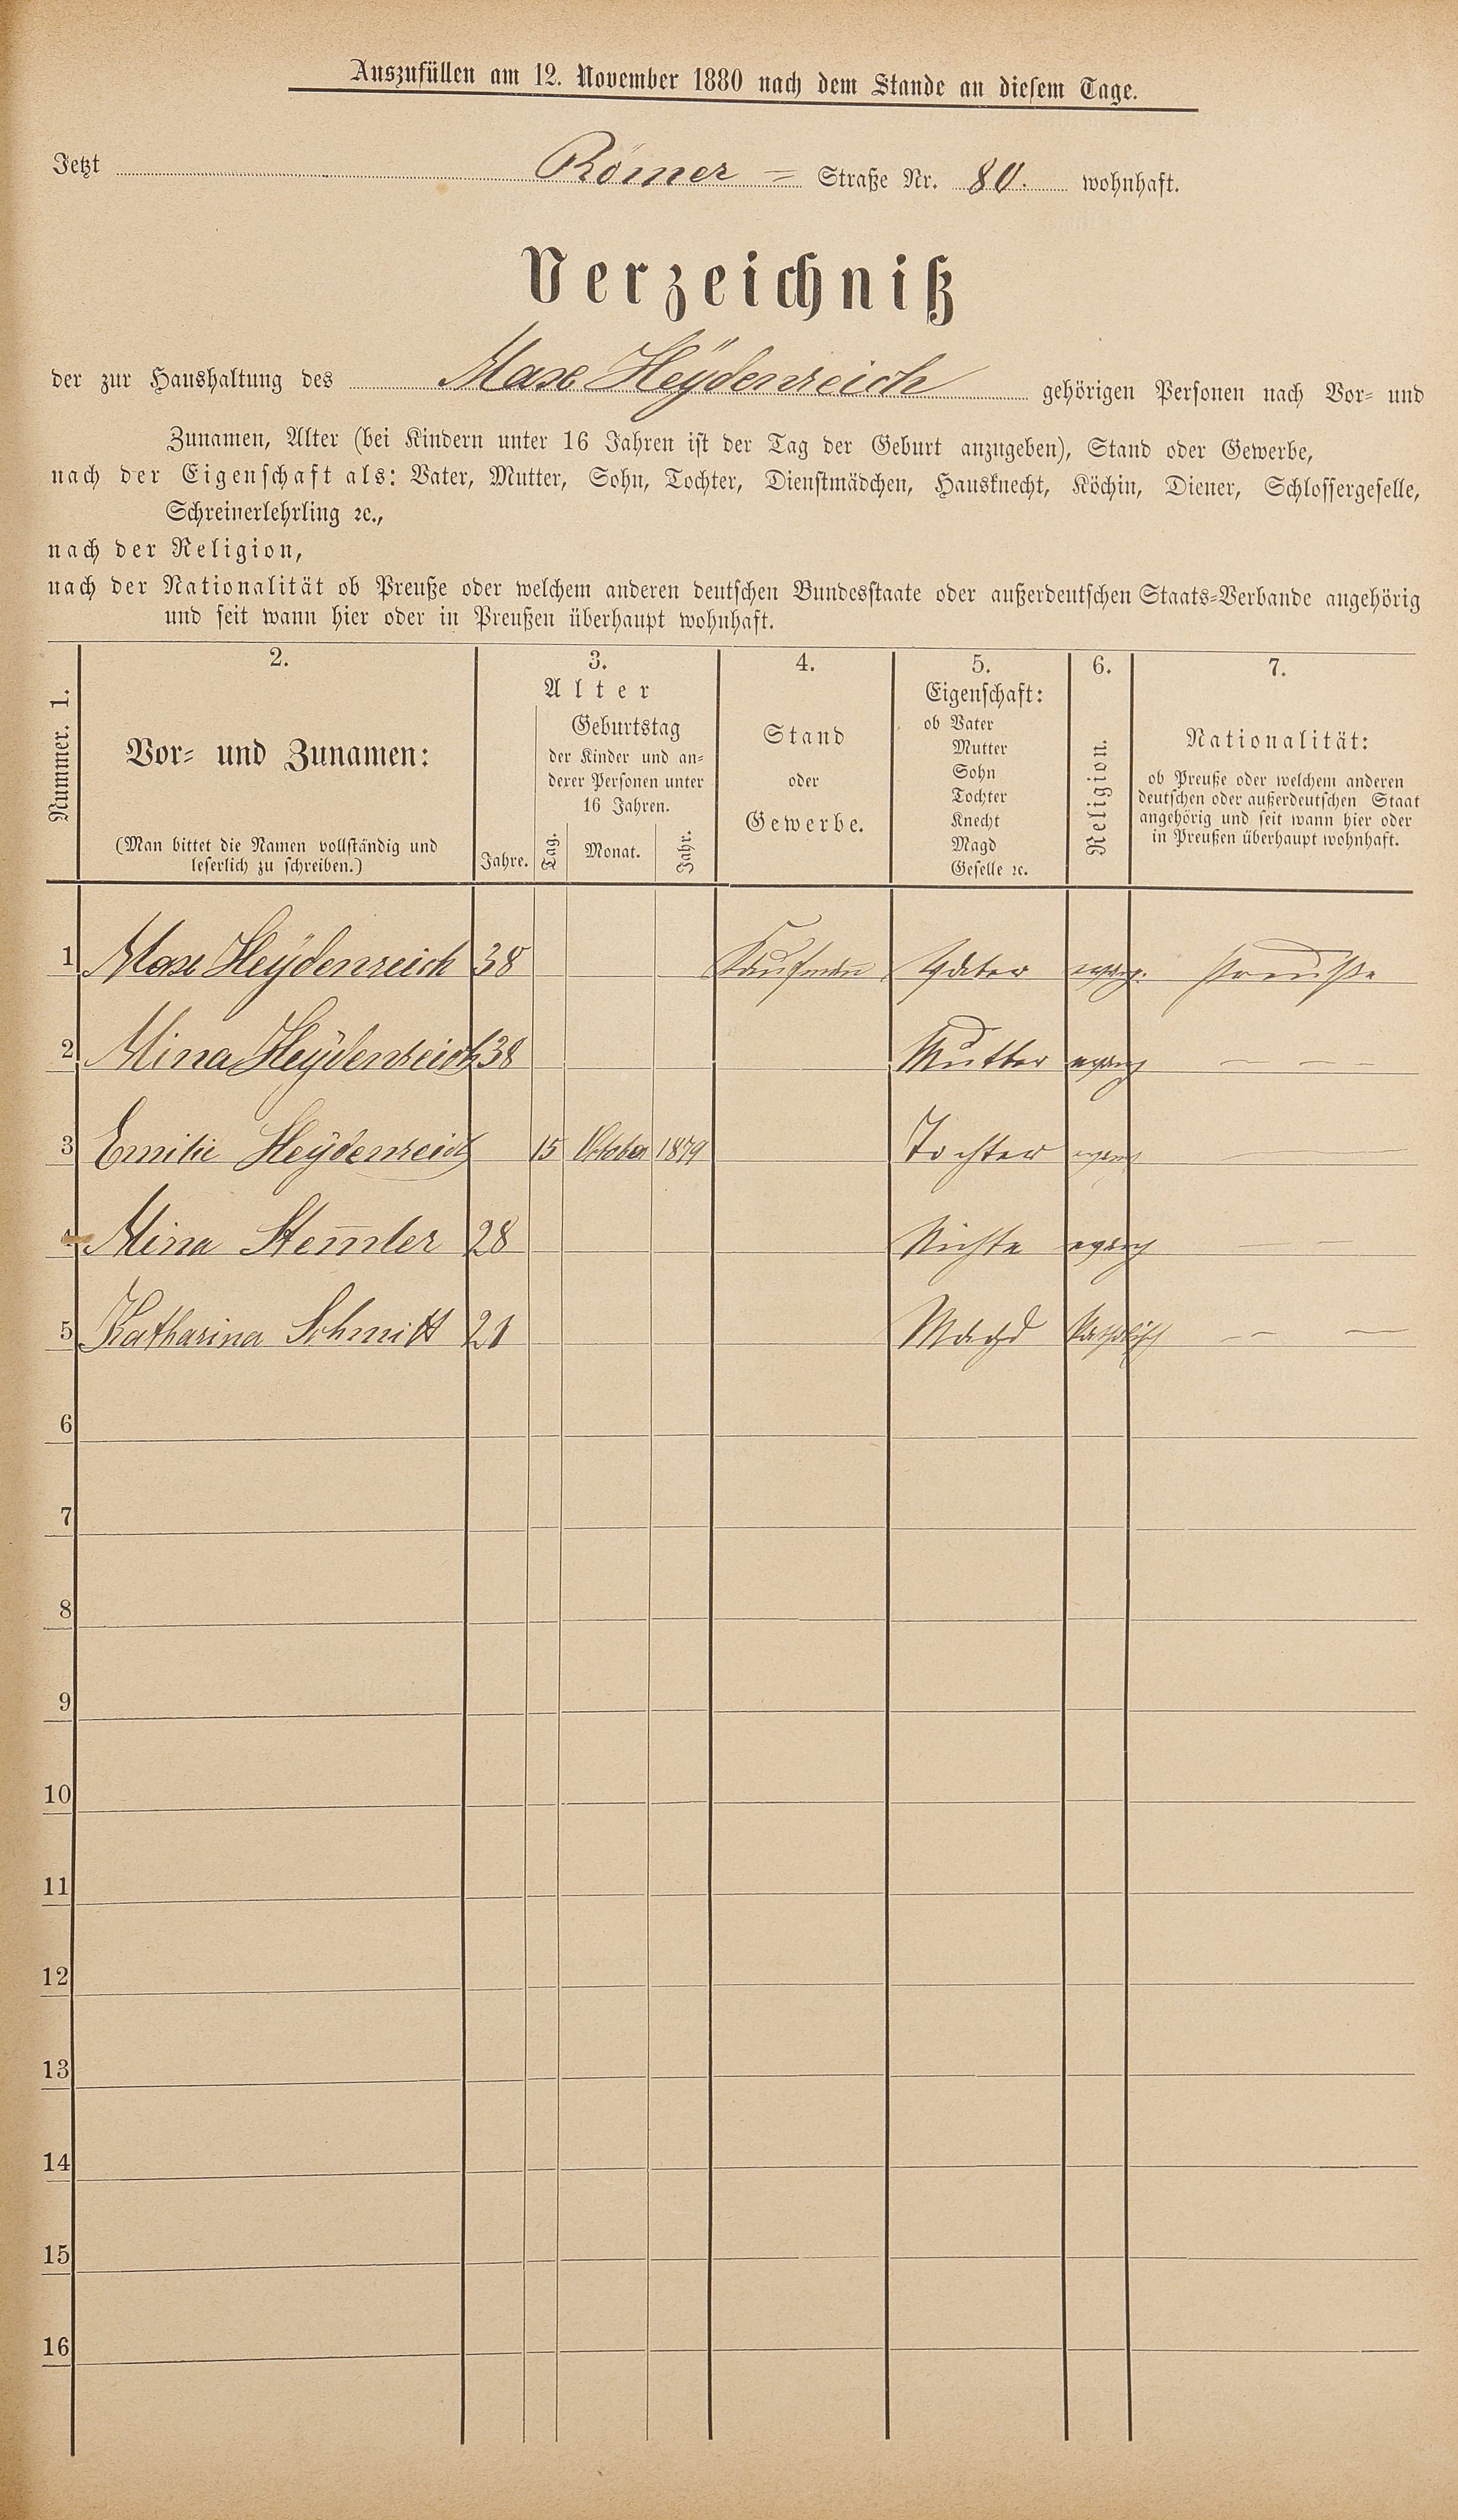 Auszufüllen am 12. November 1880 nach dem Stande an diesem Tage.
Jetzt Römer = Straße Nr. 80. wohnhaft.
Verzeichniß
der zur Haushaltung des Max Heÿdenreich gehörigen Personen nach Vor- und
Zunamen, Alter (bei Kindern unter 16 Jahren ist der Tag der Geburt anzugeben), Stand oder Gewerbe,
nach der Eigenschaft als: Vater, Mutter, Sohn, Tochter, Dienstmädchen, Hausknecht, Köchin, Diener, Schlossergeselle,
Schreinerlehrling ꝛc.,
nach der Religion,
nach der Nationalität ob Preuße oder welchem anderen deutschen Bundesstaate oder außerdeutschen Staats-Verbande angehörig
und seit wann hier oder in Preußen überhaupt wohnhaft.
Nummer. 1.
2.
Vor- und Zunamen:
(Man bittet die Namen vollständig und
leserlich zu schreiben.)
3.
Alter
Geburtstag
der Kinder und an-
derer Personen unter
16 Jahren.
Jahre. Tag. Monat. Jahr.
4.
Stand
oder
Gewerbe.
5.
Eigenschaft:
ob Vater
Mutter
Sohn
Tochter
Knecht
Magd
Geselle ꝛc.
6.
Religion.
7.
Nationalität:
ob Preuße oder welchem anderen
deutschen oder außerdeutschen Staat
angehörig und seit wann hier oder
in Preußen überhaupt wohnhaft.
1 Max Heÿdenreich 38 Kaufman̄ Vater evang. Preuße
2 Mina Heÿdenreich 38 Mutter evang — —
3 Emilie Heÿdenreich 15 Oktober 1879 Tochter evang — —
4 Mina Stem̄ler 28 Nichte evang — —
5 Katharina Schmitt 21 Magd katholisch — —
6
7
8
9
10
11
12
13
14
15
16